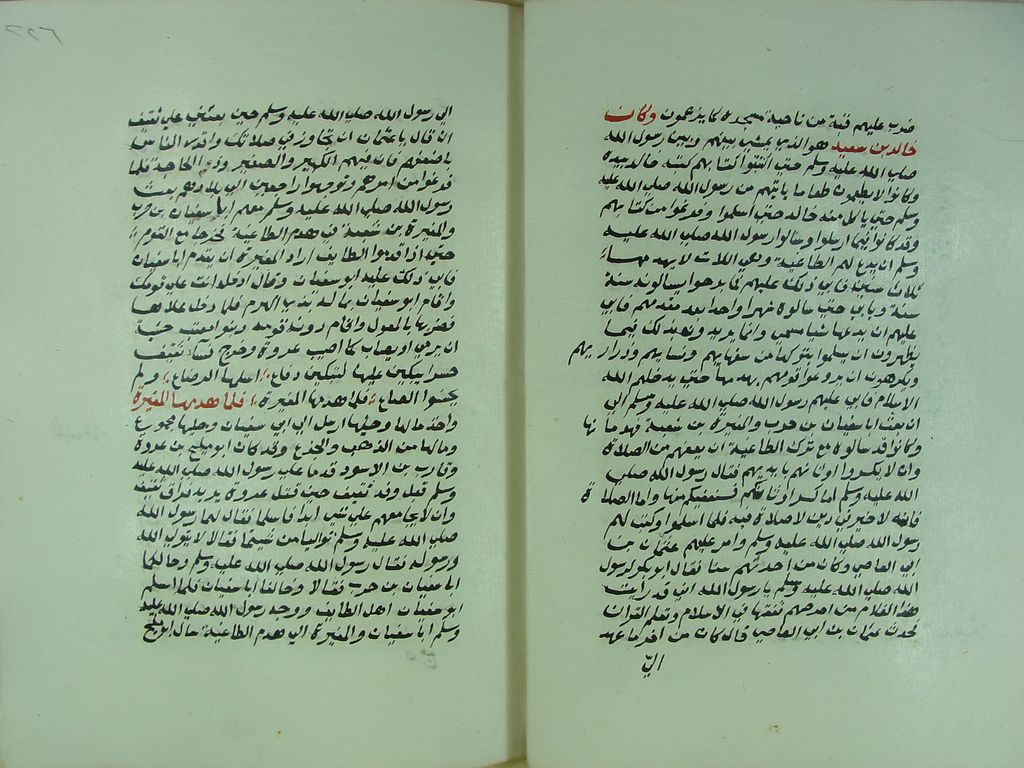 ضرب عليهم قبة من ناحية مسجده كما يزعمون وكان
خالد بن سعيد هو الذي يمشي بينهم وبين رسول الله
صلى الله عليه وسلم حتى اكتتبوا كتابهم كتبه خالد بيده
وكانوا لا يطعمون طعاما ياتيهم من رسول الله صلى الله عليه
وسلم حتى ياكل منه خالد حتى اسلموا وفرغوا من كتابهم
وقد كانوا فيما ارسلوا وسالوا رسول الله صلى الله عليه
وسلم ان يدع لهم الطاغية وهي اللات لا يهدمها
ثلاث سنين فابى ذلك عليهم فما برحوا يسالونه سنة
سنة ويابى حتى سالوه شهرا واحدا بعد مقدمهم فابى
عليهم ان يدعها شيا مسمى وانما يريدون بذلك فيما
يظهرون ان يسلموا بتركها من سفهايهم ونسايهم وذراريهم
ويكرهون ان يروعوا قومهم بهدمها حتى يدخلهم الله
الاسلام فابى عليهم رسول الله صلى الله عليه وسلم الى
ان بعث ابا سفيان بن حرب والمغيرة بن شعبة فهدماها
وكانوا قد سالوه مع ترك الطاغية ان يعفيهم من الصلاة
وان لا يكسروا اوثانهم بايديهم فقال رسول الله صلى
الله عليه وسلم اما كسر اوثانكم فسنعفيكم منها واما الصلاة
فانه لا خير في دين لا صلاة فيه فلما اسلموا وكتب لهم
رسول الله صلى الله عليه وسلم وامر عليهم عثمان بن
ابي العاصي وكان من احدثهم سنا فقال ابو بكر لرسول
الله صلى الله عليه وسلم يا رسول الله اني قد رايت
هذا الغلام من احرصهم تفقها في الاسلام وتعلم القران
فحدث عثمان بن ابي العاصي قال كان من اخر ما عهد
الي
الي رسول الله صلى الله عليه وسلم حين بعثني على ثقيف
ان قال يا عثمان ان تجاوز في صلاتك واقدر الناس
باضعفهم فان فيهم الكبير والصغير وذي الحاجة فلما
فرغوا من امرهم وتوجهوا راجعين الى بلادهم بعث
رسول الله صلى الله عليه وسلم معهم ابا سفيان بن حرب
والمغيرة بن شعبة في هدم الطاغية فخرجا مع القوم
حتى اذا قدموا الطايف اراد المغيرة ان يقدم ابا سفيان
فابى ذلك عليه ابو سفيان وقال ادخل انت على قومك
واقام ابو سفيان بماله بذي الهرم فلما دخل علاها
فضربها بالمعول واقام دونه قومه بنو معتب خشية
ان يرمى او يصاب كما اصيب عروة وخرج نساء ثقيف
حسرا يبكين عليها لتبكين دفاع اسلمها الرضاع ولم
يحسنوا المصاع فلما هدمها المغيرة فلما هدمها المغيرة
واخذ مالها وحليها ارسل الى ابي سفيان وحليها مجموع
ومالها من الذهب والجذع وقد كان ابو مليح بن عروة
وقارب بن الاسود قدما على رسول الله صلى الله عليه
وسلم قبل وفد ثقيف حين قتل عروة يريد فراق ثقيف
وان لا يجامعهم على شي ابدا فاسلما فقال لهما رسول الله
صلى الله عليه وسلم توليا من شيتما فقالا لا نتولى الله
ورسوله فقال رسول الله صلى الله عليه وسلم وخالكما
ابا سفيان بن حرب فقالا وخالنا ابا سفيان فلما اسلم
ابو سفيان اهل الطايف ووجه رسول الله صلى الله عليه
وسلم ابا سفيان والمغيرة الى هدم الطاغية سال ابو مليح